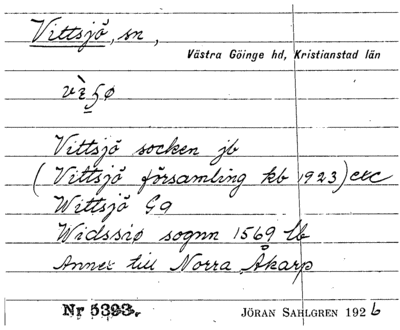 Vittsjö, sn,
Västra Göinge hd, Kristianstad län
Vittsjö socken jb
(Vittsjö församling kb 1923) etc
Wittsjö Gg
Widssiø sognn 1569 lb
Annex till Norra Åkarp
Nr 5393.
JÖRAN SAHLGREN 1926